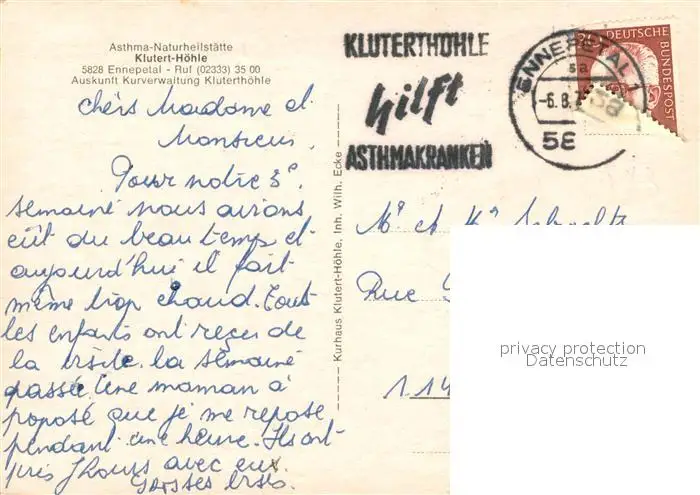 Asthma-Naturheilstätte
Klutert-Höhle
5828 Ennepetal - Ruf (02333) 35 00
Auskunft Kurverwaltung Kluterthöhle
chérs Madame et
Monsieur.
Pour notre 3e
semaine nous avions
eût du beau temps et
aujourd'hui il fait
même trop chaud. Tout
les enfants ont reçer de
la visite. la semaine
passée. Une maman à
poposé que je me repose
pendant une heure. Ils ont
pris jhours avec eux.
Kurhaus Klutert-Höhle, Inh. Wilh. Ecke
KLUTERTHÖHLE
hilft
ASTHMAKRANKEN
ENNEPETAL 1
sa
-6.8.7
58
DEUTSCHE
BUNDESPOST
Me et Mr
Rue
114
privacy protection
Datenschutz